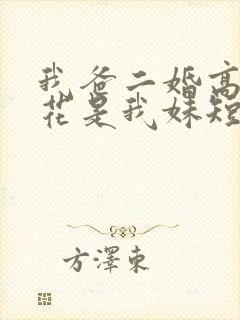 我爸二婚高
花是我妹短
方澤東